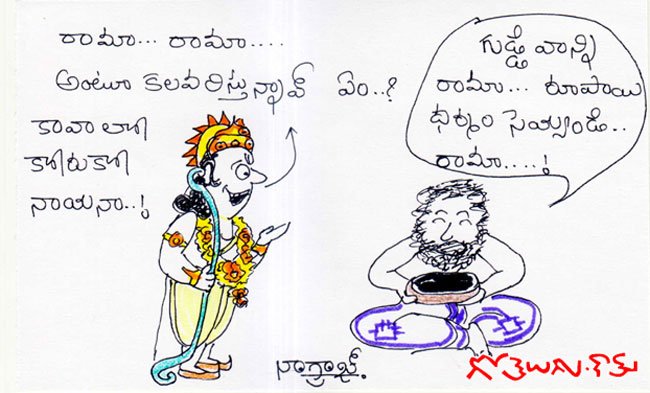 రామా... రామా....
అంటూ కలవరిస్తున్నావ్ ఏం..?
కావాలో
కోరుకో
నాయినా..!
గుడ్డి వాన్ని
రామా... రూపాయి
ధర్మం సెయ్యండి..
రామా....!
నాగ్రాజ్.
గోతెలుగు.కామ్